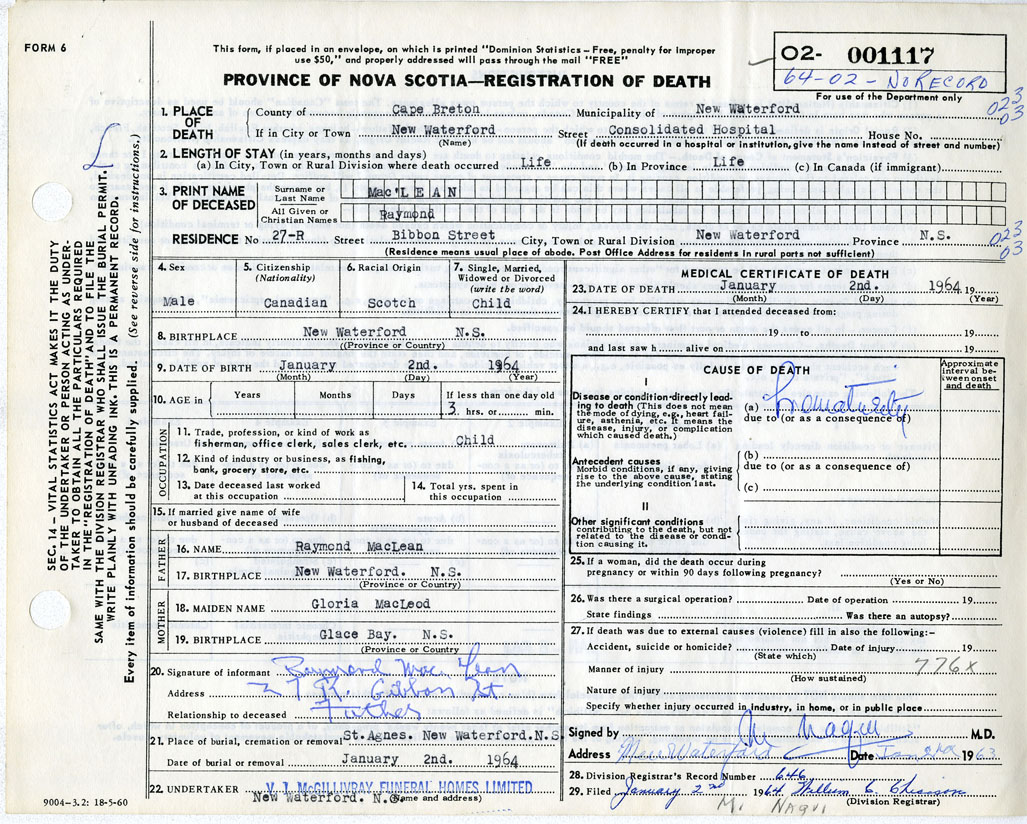 FORM 6
This form, if placed in an envelope, on which is printed "Dominion Statistics – Free, penalty for improper
use $50," and properly addressed will pass through the mail "FREE"
PROVINCE OF NOVA SCOTIA—REGISTRATION OF DEATH
O2- 001117
64-02 - NO RECORD
For use of the Department only
023
03
SEC. 14 – VITAL STATISTICS ACT MAKES IT THE DUTY
OF THE UNDERTAKER OR PERSON ACTING AS UNDER-
TAKER TO OBTAIN ALL THE PARTICULARS REQUIRED
IN THE "REGISTRATION OF DEATH" AND TO FILE THE
SAME WITH THE DIVISION REGISTRAR WHO SHALL ISSUE THE BURIAL PERMIT.
WRITE PLAINLY WITH UNFADING INK. THIS IS A PERMANENT RECORD.
Every item of information should be carefully supplied. (See reverse side for instructions,)
1. PLACE OF DEATH
County of Cape Breton Municipality of New Waterford
If in City or Town New Waterford Street Consolidated Hospital House No.
(Name) (If death occurred in a hospital or institution, give the name instead of street and number)
2. LENGTH OF STAY (in years, months and days)
(a) In City, Town or Rural Division where death occurred Life (b) In Province Life (c) In Canada (if immigrant)
3. PRINT NAME OF DECEASED
Surname or Last Name Mac'LEAN
All Given or Christian Names Raymond
RESIDENCE No 27-R Street Bibbon Street City, Town or Rural Division New Waterford Province N.S.
(Residence means usual place of abode. Post Office Address for residents in rural parts not sufficient)
023
03
4. Sex
Male
5. Citizenship
(Nationality)
Canadian
6. Racial Origin
Scotch
7. Single, Married,
Widowed or Divorced
(write the word)
Child
8. BIRTHPLACE New Waterford N.S.
((Province or Country)
9. DATE OF BIRTH January 2nd. 1964
(Month) (Day) (Year)
10. AGE in
Years Months Days If less than one day old
3 hrs. or min.
OCCUPATION
11. Trade, profession, or kind of work as
fisherman, office clerk, sales clerk, etc. Child
12. Kind of industry or business, as fishing,
bank, grocery store, etc.
13. Date deceased last worked
at this occupation
14. Total yrs. spent in
this occupation
15. If married give name of wife
or husband of deceased
FATHER
16. NAME Raymond MacLean
17. BIRTHPLACE New Waterford. N.S.
(Province or Country)
MOTHER
18. MAIDEN NAME Gloria MacLeod
19. BIRTHPLACE Glace Bay. N.S.
(Province or Country
20. Signature of informant Raymond Mac Lean
Address 27 R. Gibbon St
Relationship to deceased Father
21. Place of burial, cremation or removal St.Agnes. New Waterford.N.S.
Date of burial or removal January 2nd. 1964
22. UNDERTAKER V. J. McGILLIVRAY FUNERAL HOMES LIMITED
New Waterford. N.S. (Name and address)
9004-3.2: 18-5-60
MEDICAL CERTIFICATE OF DEATH
23. DATE OF DEATH January 2nd. 1964 19
(Month) (Day) (Year)
24. I HEREBY CERTIFY that I attended deceased from:
19 to 19
and last saw h alive on 19
CAUSE OF DEATH
Approximate
interval be-
tween onset
and death
I
Disease or condition directly lead-
ing to death (This does not mean
the mode of dying, e.g., heart fail-
ure, asthenia, etc. It means the
disease, injury, or complication
which caused death.)
(a) Prematurity
due to (or as a consequence of)
Antecedent causes
Morbid conditions, if any, giving
rise to the above cause, stating
the underlying condition last.
(b)
due to (or as a consequence of)
(c)
II
Other significant conditions
contributing to the death, but not
related to the disease or condi-
tion causing it.
25. If a woman, did the death occur during
pregnancy or within 90 days following pregnancy?
(Yes or No)
26. Was there a surgical operation? Date of operation 19
State findings Was there an autopsy?
27. If death was due to external causes (violence) fill in also the following:–
Accident, suicide or homicide? Date of injury 19
(State which)
Manner of injury 776X
(How sustained)
Nature of injury
Specify whether injury occurred in industry, in home, or in public place
Signed by M Naqui M.D.
Address New Waterford Date Jan 2nd 1963
28. Division Registrar's Record Number 646
29. Filed January 2nd 1964 William C. Chiasson
(Division Registrar)
M. NAQUI